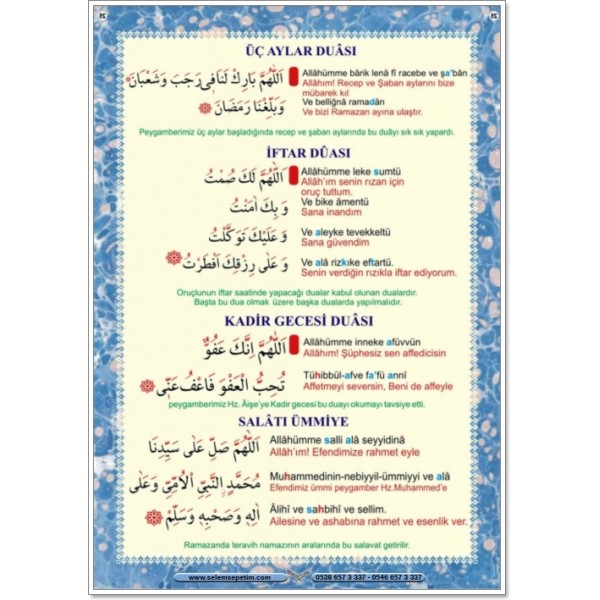 23
23
ÜÇ AYLAR DUÂSI
اَللّٰهُمَّ بَارِكْ لَنَا فِي رَجَبَ وَشَعْبَانَ
Allâhümme bârik lenâ fî racebe ve şa'bân
Allâhım! Recep ve Şaban aylarını bize
mübarek kıl
وَبَلِّغْنَا رَمَضَانَ
Ve belliğnâ ramadân
Ve bizi Ramazan ayına ulaştır.
Peygamberimiz üç aylar başladığında recep ve şaban aylarında bu duâyı sık sık yapardı.
İFTAR DÛASI
اَللّٰهُمَّ لَكَ صُمْتُ
Allâhümme leke sumtü
Allâh'ım senin rızan için
oruç tuttum.
وَ بِكَ اٰمَنْتُ
Ve bike âmentü
Sana inandım
وَ عَلَيْكَ تَوَكَّلْتُ
Ve aleyke tevekkeltü
Sana güvendim
وَ عَلٰى رِزْقِكَ اَفْطَرْتُ
Ve alâ rizkıke eftartü.
Senin verdiğin rızıkla iftar ediyorum.
Oruçlunun iftar saatinde yapacağı dualar kabul olunan dualardır.
Başta bu dua olmak üzere başka dualarda yapılmalıdır.
KADİR GECESİ DUÂSI
اَللّٰهُمَّ اِنَّكَ عَفُوٌّ
Allâhümme inneke afüvvün
Allâhım! Şüphesiz sen affedicisin
تُحِبُّ الْعَفْوَ فَاعْفُ عَنِّي
Tühibbül-afve fa'fü annî
Affetmeyi seversin, Beni de affeyle
peygamberimiz Hz. Âişe'ye Kadir gecesi bu duayı okumayı tavsiye etti.
SALÂTI ÜMMİYE
اَللّٰهُمَّ صَلِّ عَلٰى سَيِّدِنَا
Allâhümme salli alâ seyyidinâ
Allâh'ım! Efendimize rahmet eyle
مُحَمَّدٍ النَّبِيِّ الْاُمِّيِّ وَعَلٰى
Muhammedinin-nebiyyil-ümmiyyi ve alâ
Efendimiz ümmi peygamber Hz.Muhammed'e
اٰلِهِ وَصَحْبِهِ وَسَلِّمْ
Âlihî ve sahbihî ve sellim.
Ailesine ve ashabına rahmet ve esenlik ver.
Ramazanda teravih namazının aralarında bu salavat getirilir.
www.selemsepetim.com
0538 657 3 337 - 0546 657 3 337